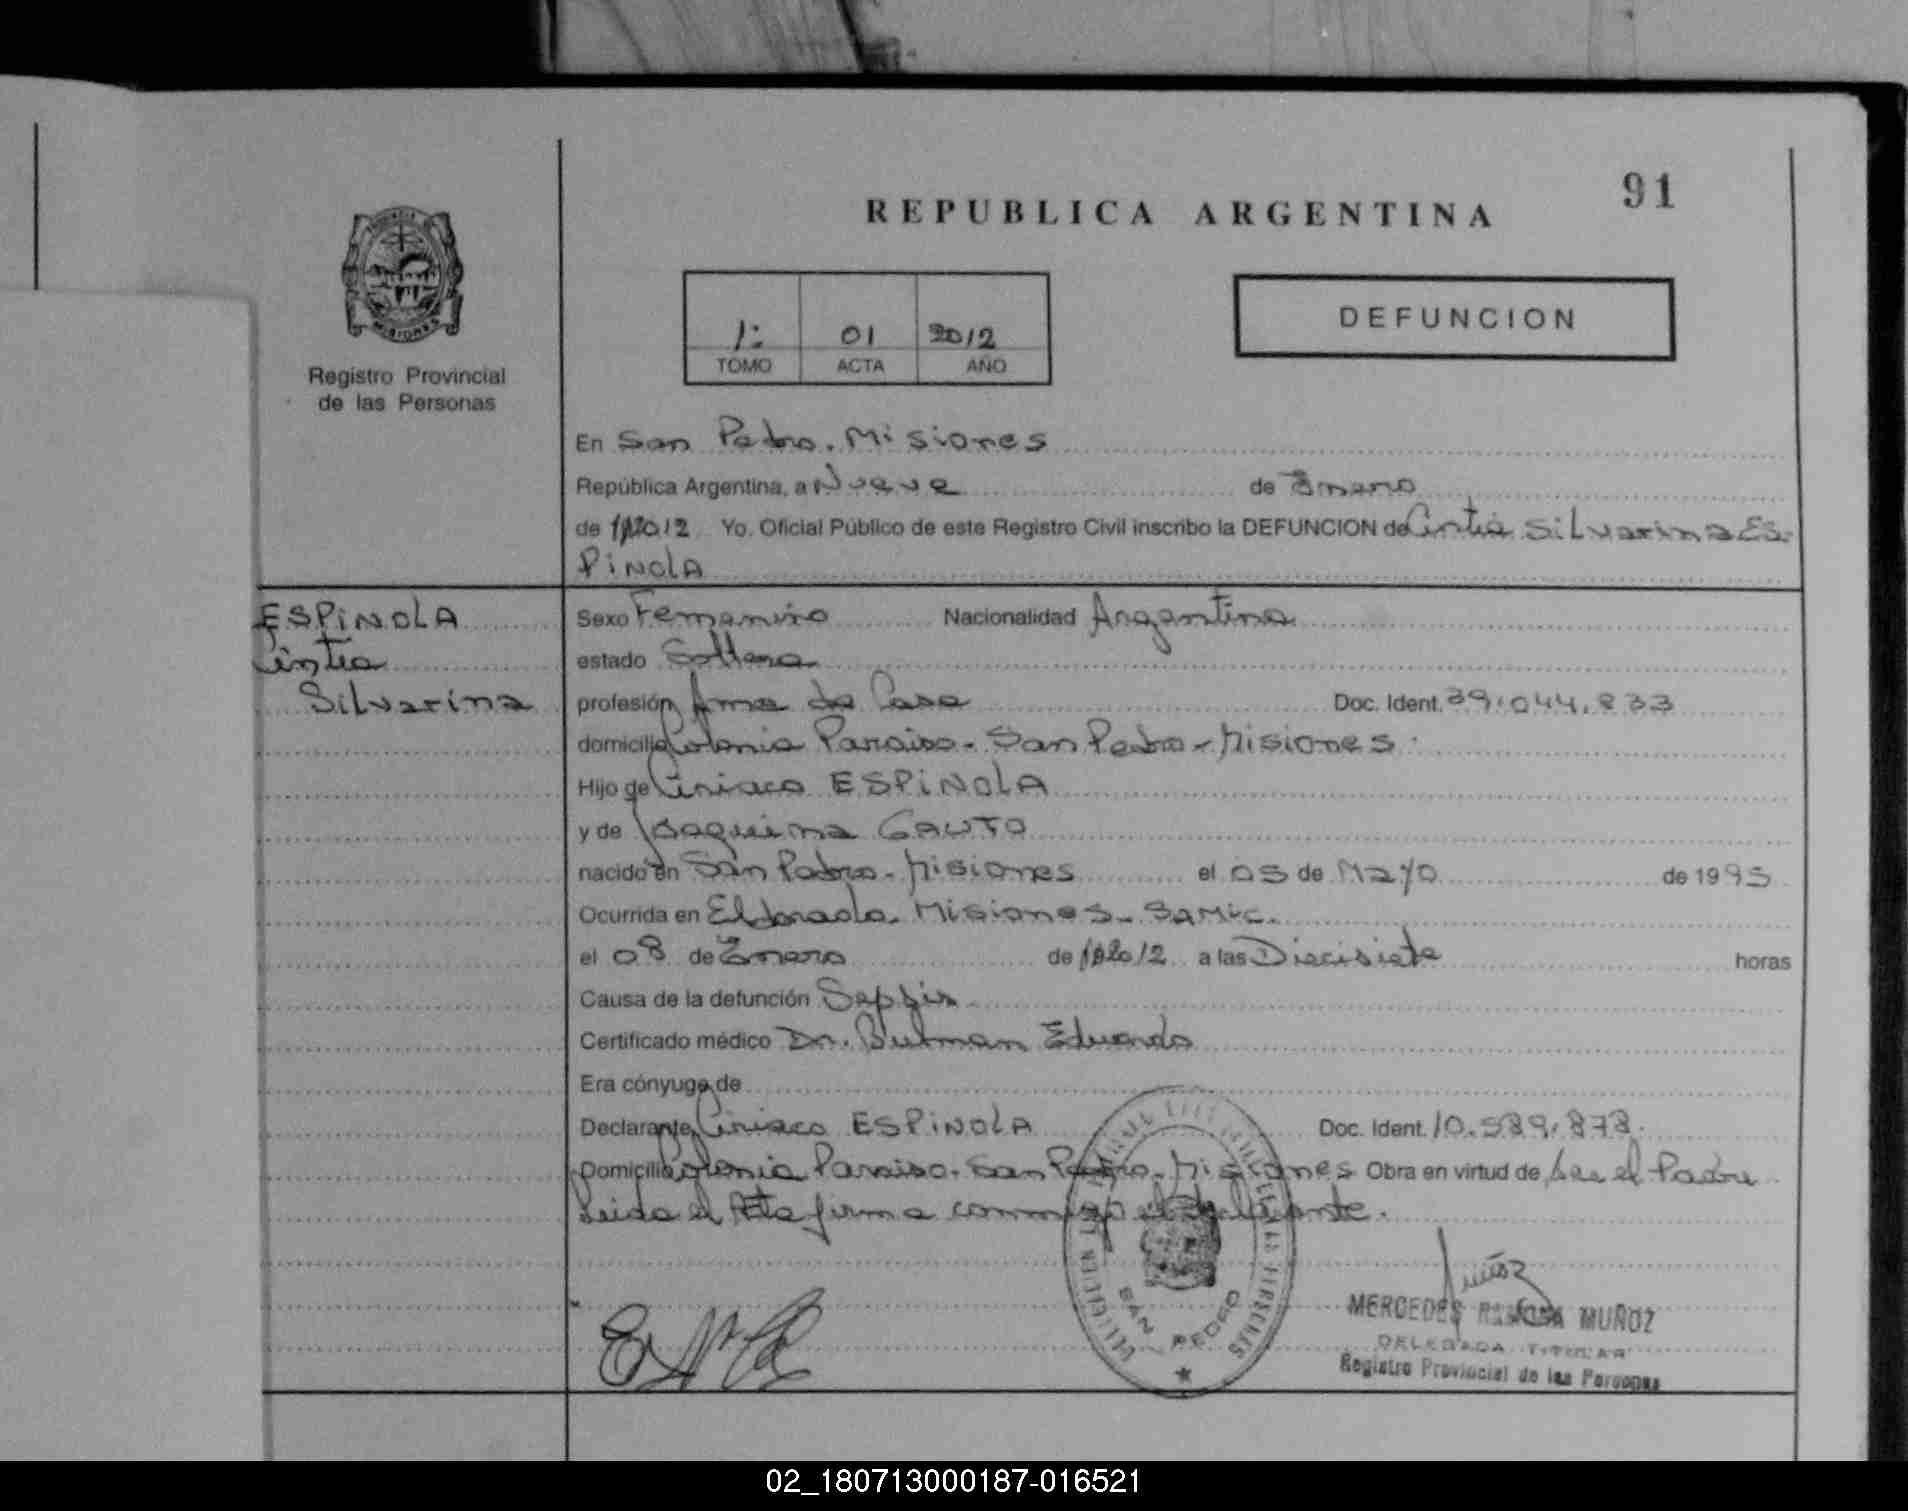 91
REPUBLICA ARGENTINA
DEFUNCION
1: 01 2012
TOMO ACTA AÑO
MISIONES
Registro Provincial
de las Personas
En San Pedro. Misiones
República Argentina, a Nueve de Enero
de 2012 Yo. Oficial Público de este Registro Civil inscribo la DEFUNCION de Cintia Silvarina Es-
PiNOLA
ESPiNOLA
Cintia
Silvarina
Sexo Femenino Nacionalidad Argentina
estado Soltera
profesión Ama de Casa Doc. Ident. 39.044.833
domicilio Colonia Paraiso - San Pedro - Misiones.
Hijo de Ciriaco ESPiNOLA
y de Joaquina GAUTO
nacido en San Pedro - Misiones el 05 de Mayo de 1995
Ocurrida en Eldorado. Misiones - Samic.
el 08 de Enero de 2012 a las Diecisiete horas
Causa de la defunción Sepsis
Certificado médico Dr. Butman Eduardo
Era cónyuge de
Declarante Ciriaco ESPiNOLA Doc. Ident. 10.589.878.
Domicilio Colonia Paraiso. San Pedro - Misiones Obra en virtud de ser el Padre
Leida el Acta firma conmigo el declarante.
SAN PEDRO
Muñoz
MERCEDES RAMONA MUÑOZ
DELEGADA TITULAR
Registro Provincial de las Personas
02_180713000187-016521